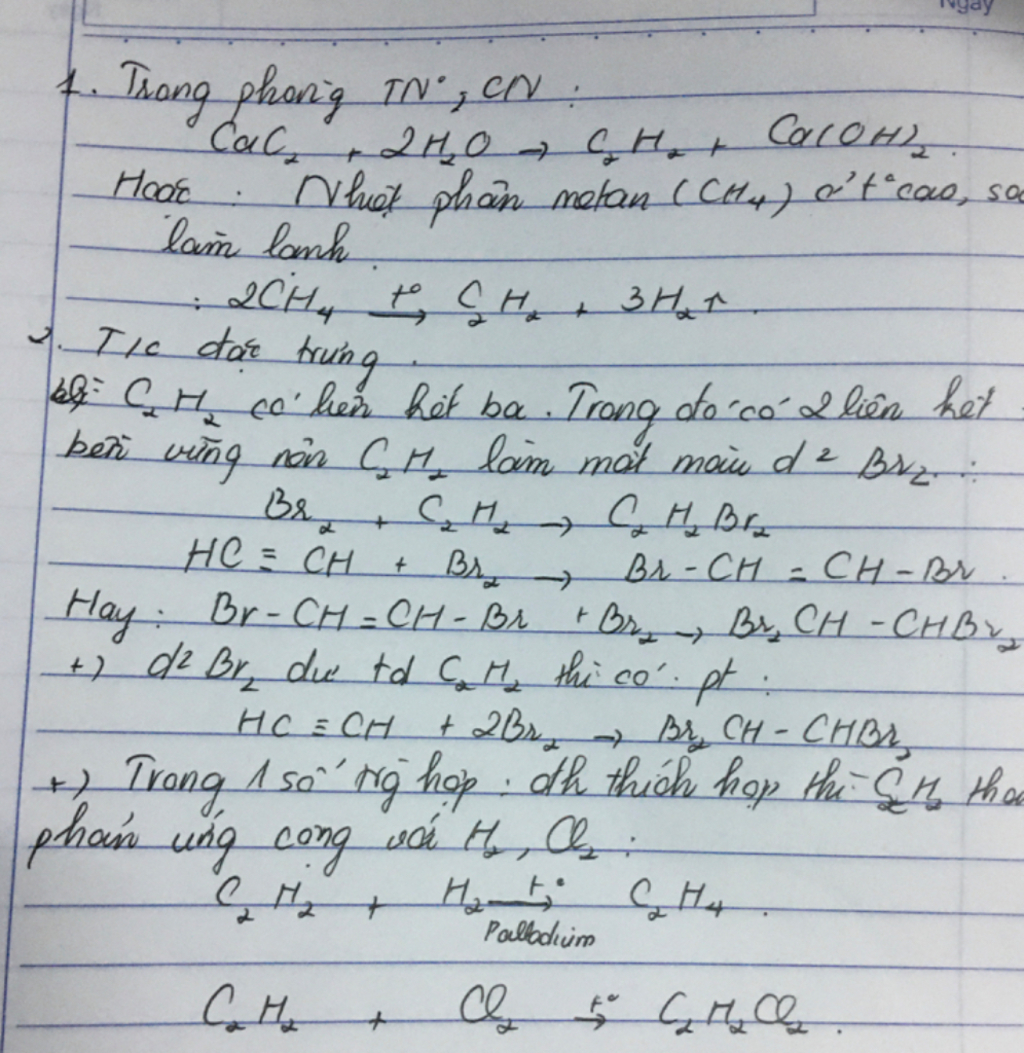 Ngày
1. Trong phòng TN°, CN :
CaC₂ + 2H₂O → C₂H₂ + Ca(OH)₂.
Hoặc : Nhiệt phân metan (CH₄) ở t° cao,
làm lạnh.
: 2CH₄ t°→ C₂H₂ + 3H₂↑.
2. T/c đặc trưng.
C₂H₂ có liên kết ba. Trong đó có 2 liên kết
bền vững nên C₂H₂ làm mất màu d² Br₂ :
Br₂ + C₂H₂ → C₂H₂Br₂
HC ≡ CH + Br₂ → Br - CH = CH - Br.
Hay : Br - CH = CH - Br + Br₂ → Br₂CH - CHBr₂
+) d² Br₂ dư td C₂H₂ thì có pt :
HC ≡ CH + 2Br₂ → Br₂CH - CHBr₂
+) Trong 1 số trg hợp : đk thích hợp thì C₂H₂
phản ứng cộng với H₂, Cl₂ :
C₂H₂ + H₂ t°→ C₂H₄.
Palladium
C₂H₂ + Cl₂ t°→ C₂H₂Cl₂.